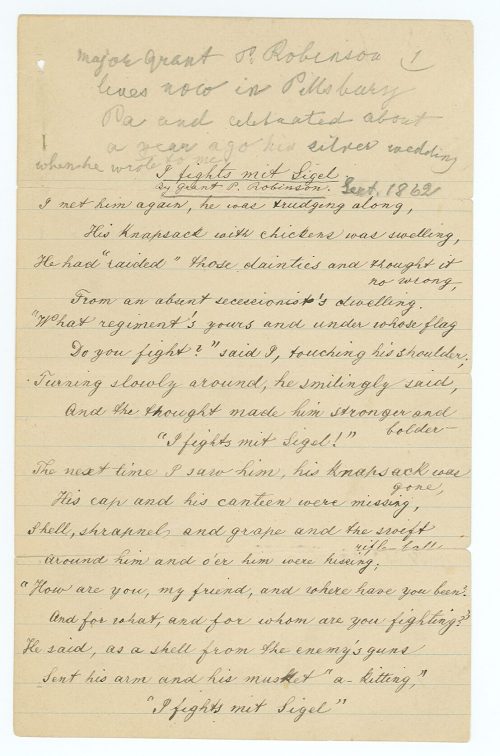 Major Grant P. Robinson 1
lives now in Pittsburg
Pa and celebrated about
a year ago his silver wedding
when he wrote to me
I fights mit Sigel.
by Grant P. Robinson. Sept, 1862
I met him again, he was trudging along,
His Knapsack with chickens was swelling,
He had "raided" those dainties and thought it
no wrong,
From an absent secessionist's dwelling.
"What regiment's yours and under whose flag
Do you fight?" said I, touching his shoulder,
Turning slowly around, he smilingly said,
And the thought made him stronger and
bolder—
"I fights mit Sigel!"
The next time I saw him, his Knapsack was
gone,
His cap and his canteen were missing,
Shell, shrapnel, and grape and the swift
rifle-ball
around him and o'er him were hissing;
"How are you, my friend, and where have you been?
And for what, and for whom are you fighting?"
He said, as a shell from the enemy's guns
Sent his arm and his musket "a-kitting,"
"I fights mit Sigel"